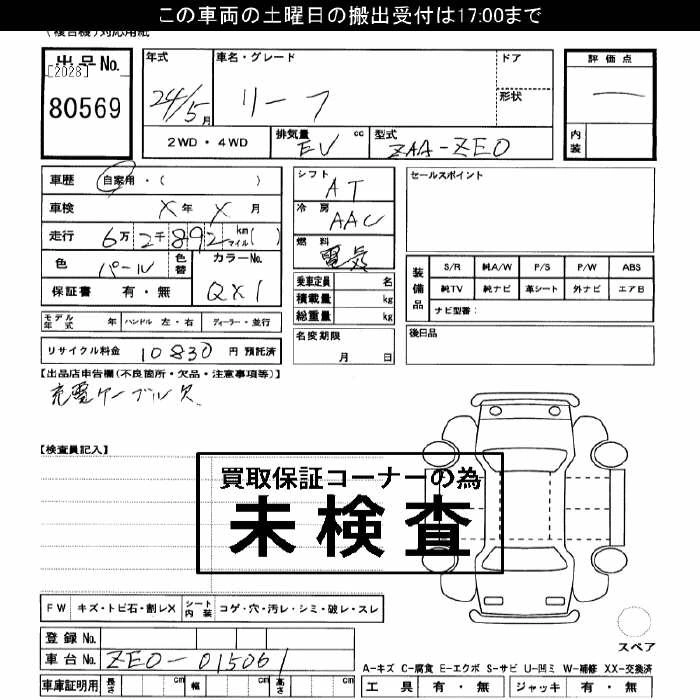 この車両の土曜日の搬出受付は17:00まで
(複合機)対応用紙
出品No.
[2028]
80569
年式
24/5月
車名・グレード
リーフ
ドア
形状
評価点
—
内装
2WD・4WD
排気量 EV cc
型式 ZAA-ZE0
車歴 自家用・( )
車検 X年 X月
走行 6万2千892 km マイル( )
色 パール 色替
カラーNo. QX1
保証書 有・無
モデル年式 年 ハンドル 左・右 ディーラー・並行
リサイクル料金 10830 円 預託済
シフト AT
冷房 AAC
燃料 電気
乗車定員 名
積載量 kg
総重量 kg
名変期限
月 日
セールスポイント
装備品
S/R 純A/W P/S P/W ABS
純TV 純ナビ 革シート 外ナビ エアB
ナビ型番:
後日品
【出品店申告欄(不良箇所・欠品・注意事項等)】
充電ケーブル欠
【検査員記入】
買取保証コーナーの為
未検査
FW キズ・トビ石・割レX シート内装 コゲ・穴・汚レ・シミ・破レ・スレ
登録No.
車台No. ZE0-015061
車庫証明用 長さ cm 幅 cm 高さ cm
スペア
A-キズ C-腐食 E-エクボ S-サビ U-凹ミ W-補修 XX-交換済
工具 有・無 ジャッキ 有・無